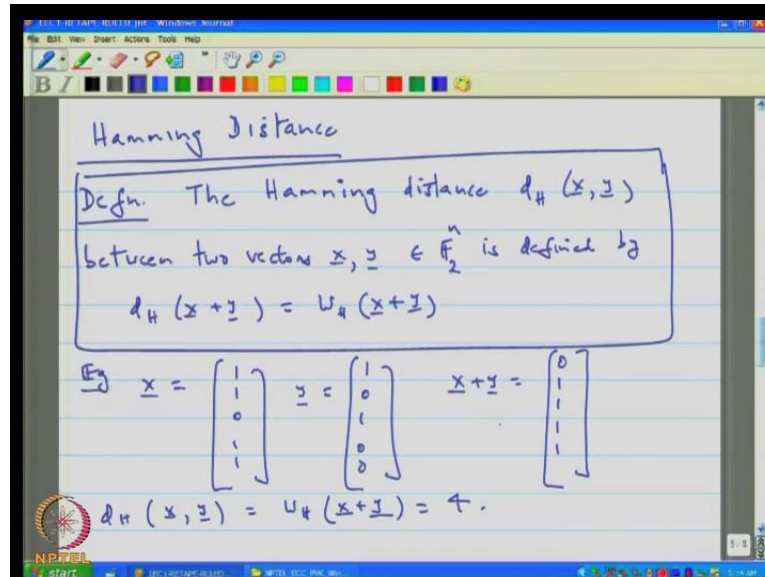 LEC1-RETAPE-RULED.jnt - Windows Journal
File Edit View Insert Actions Tools Help
B I
Hamming Distance
Defn. The Hamming distance d_H (x, y)
between two vectors x, y ∈ F_2^n is defined by
d_H (x + y) = w_H (x + y)
Eg x = [1 1 0 1 1] y = [1 0 1 0 0] x + y = [0 1 1 1 1]
d_H (x, y) = w_H (x + y) = 4.
NPTEL
start LEC1-RETAPE-RULED... NPTEL ECC PVK Win... 5:14 AM